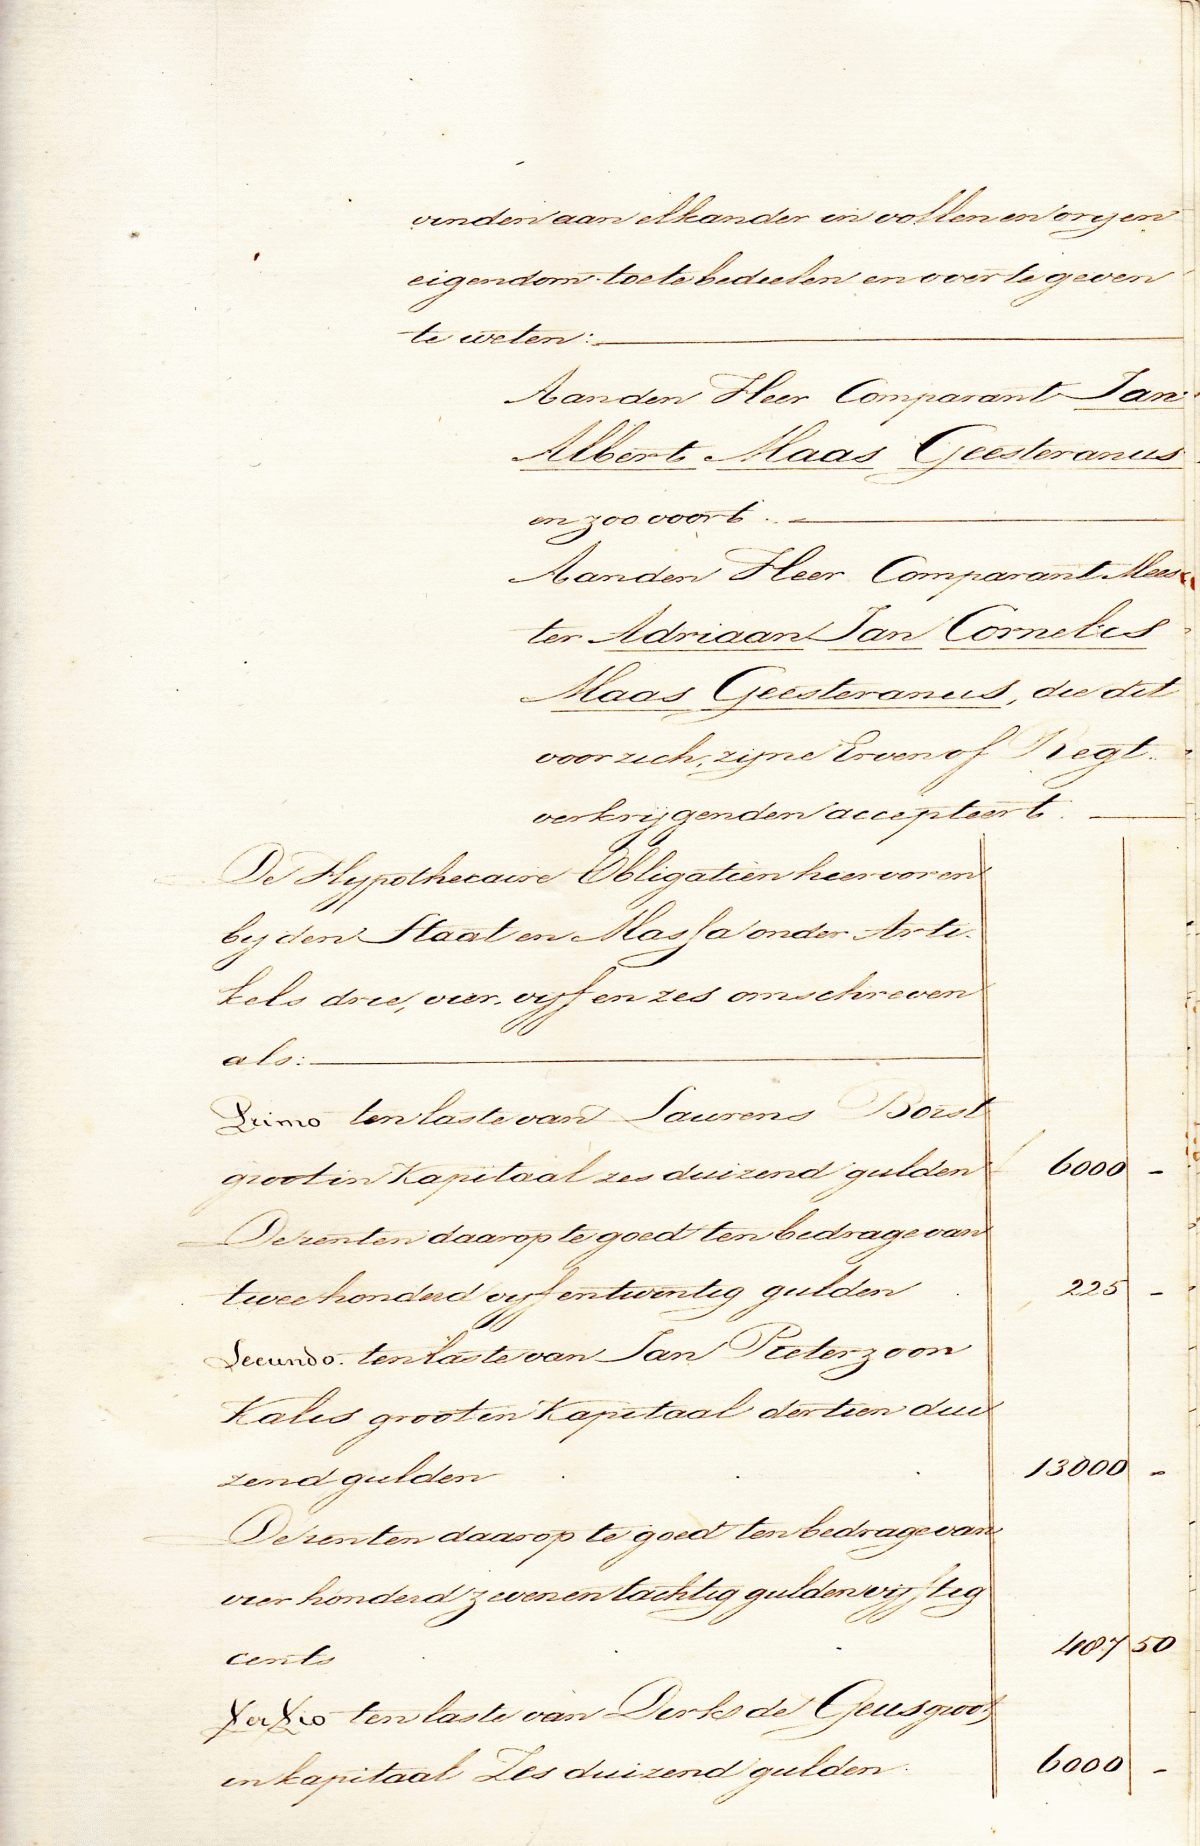 vinden aan elkander in vollen en vryen
eigendom toe te bedeelen en over te geven
te weten:
Aan den Heer Comparant Jan
Albert Maas Geesteranus
en zoo voort.
Aan den Heer Comparant Mees
ter Adriaan Jan Cornelis
Maas Geesteranus, die dit
voor zich, zijne Erven of Regt
verkrijgenden accepteert.
De Hypothecaire Obligatien hiervoren
by den Staat en Massa onder Arti-
kels drie, vier, vijf en zes omschreven
als:
Primo ten laste van Laurens Borst
groot in Kapitaal zes duizend gulden f 6000 -
De renten daarop te goed ten bedrage van
twee honderd vijf en twintig gulden 225 -
Secundo. ten laste van Jan Pieterzoon
Kalis groot in Kapitaal dertien dui
zend gulden 13000 -
De renten daarop te goed ten bedrage van
vier honderd zeven en tachtig gulden vijftig
cents 487 50
Tertio ten laste van Dirk de Geus groot
in kapitaal Zes duizend gulden. 6000 -